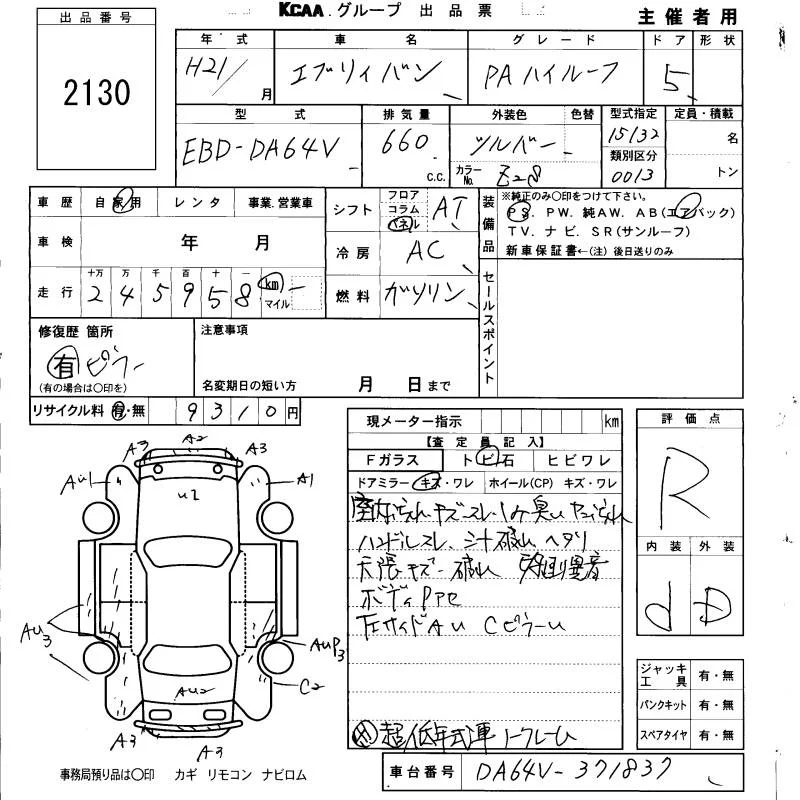 KCAA グループ 出品票
主催者用
出品番号
2130
年式 車名 グレード ドア 形状
H21/ 月 エブリィバン PAハイルーフ 5
型式 排気量 外装色 色替 型式指定 定員・積載
EBD-DA64V 660 c.c. シルバー 15132 名
カラーNo. Z28 類別区分 0013 トン
車歴 自家用 レンタ 事業.営業車
シフト フロア コラム パネル AT
装備品 ※純正のみ〇印をつけて下さい。
PS. PW. 純AW. AB(エアバック)
TV. ナビ. SR(サンルーフ)
新車保証書←(注) 後日送りのみ
車検 年 月
冷房 AC
走行 十万 万 千 百 十 一
245958 km マイル
燃料 ガソリン
セールスポイント
修復歴 箇所
有 ピラー
(有の場合は〇印を)
注意事項
名変期日の短い方 月 日まで
リサイクル料 有・無 9310円
現メーター指示 km
【査定員記入】
Fガラス トビ石 ヒビワレ
ドアミラー キズ・ワレ ホイール(CP) キズ・ワレ
ハンドルスレ、シート破れ ヘタリ
天張キズ・破れ
ボディPアセ
左サイドAU CピラーU
超低年式車 ノークレーム
評価点
R
内装 外装
d D
ジャッキ工具 有・無
パンクキット 有・無
スペアタイヤ 有・無
A3 A2 A3
AU1 A1
U2
AU3 AUP3
C2
AU2
A3 A3
事務局預り品は〇印 カギ リモコン ナビロム
車台番号 DA64V-371837